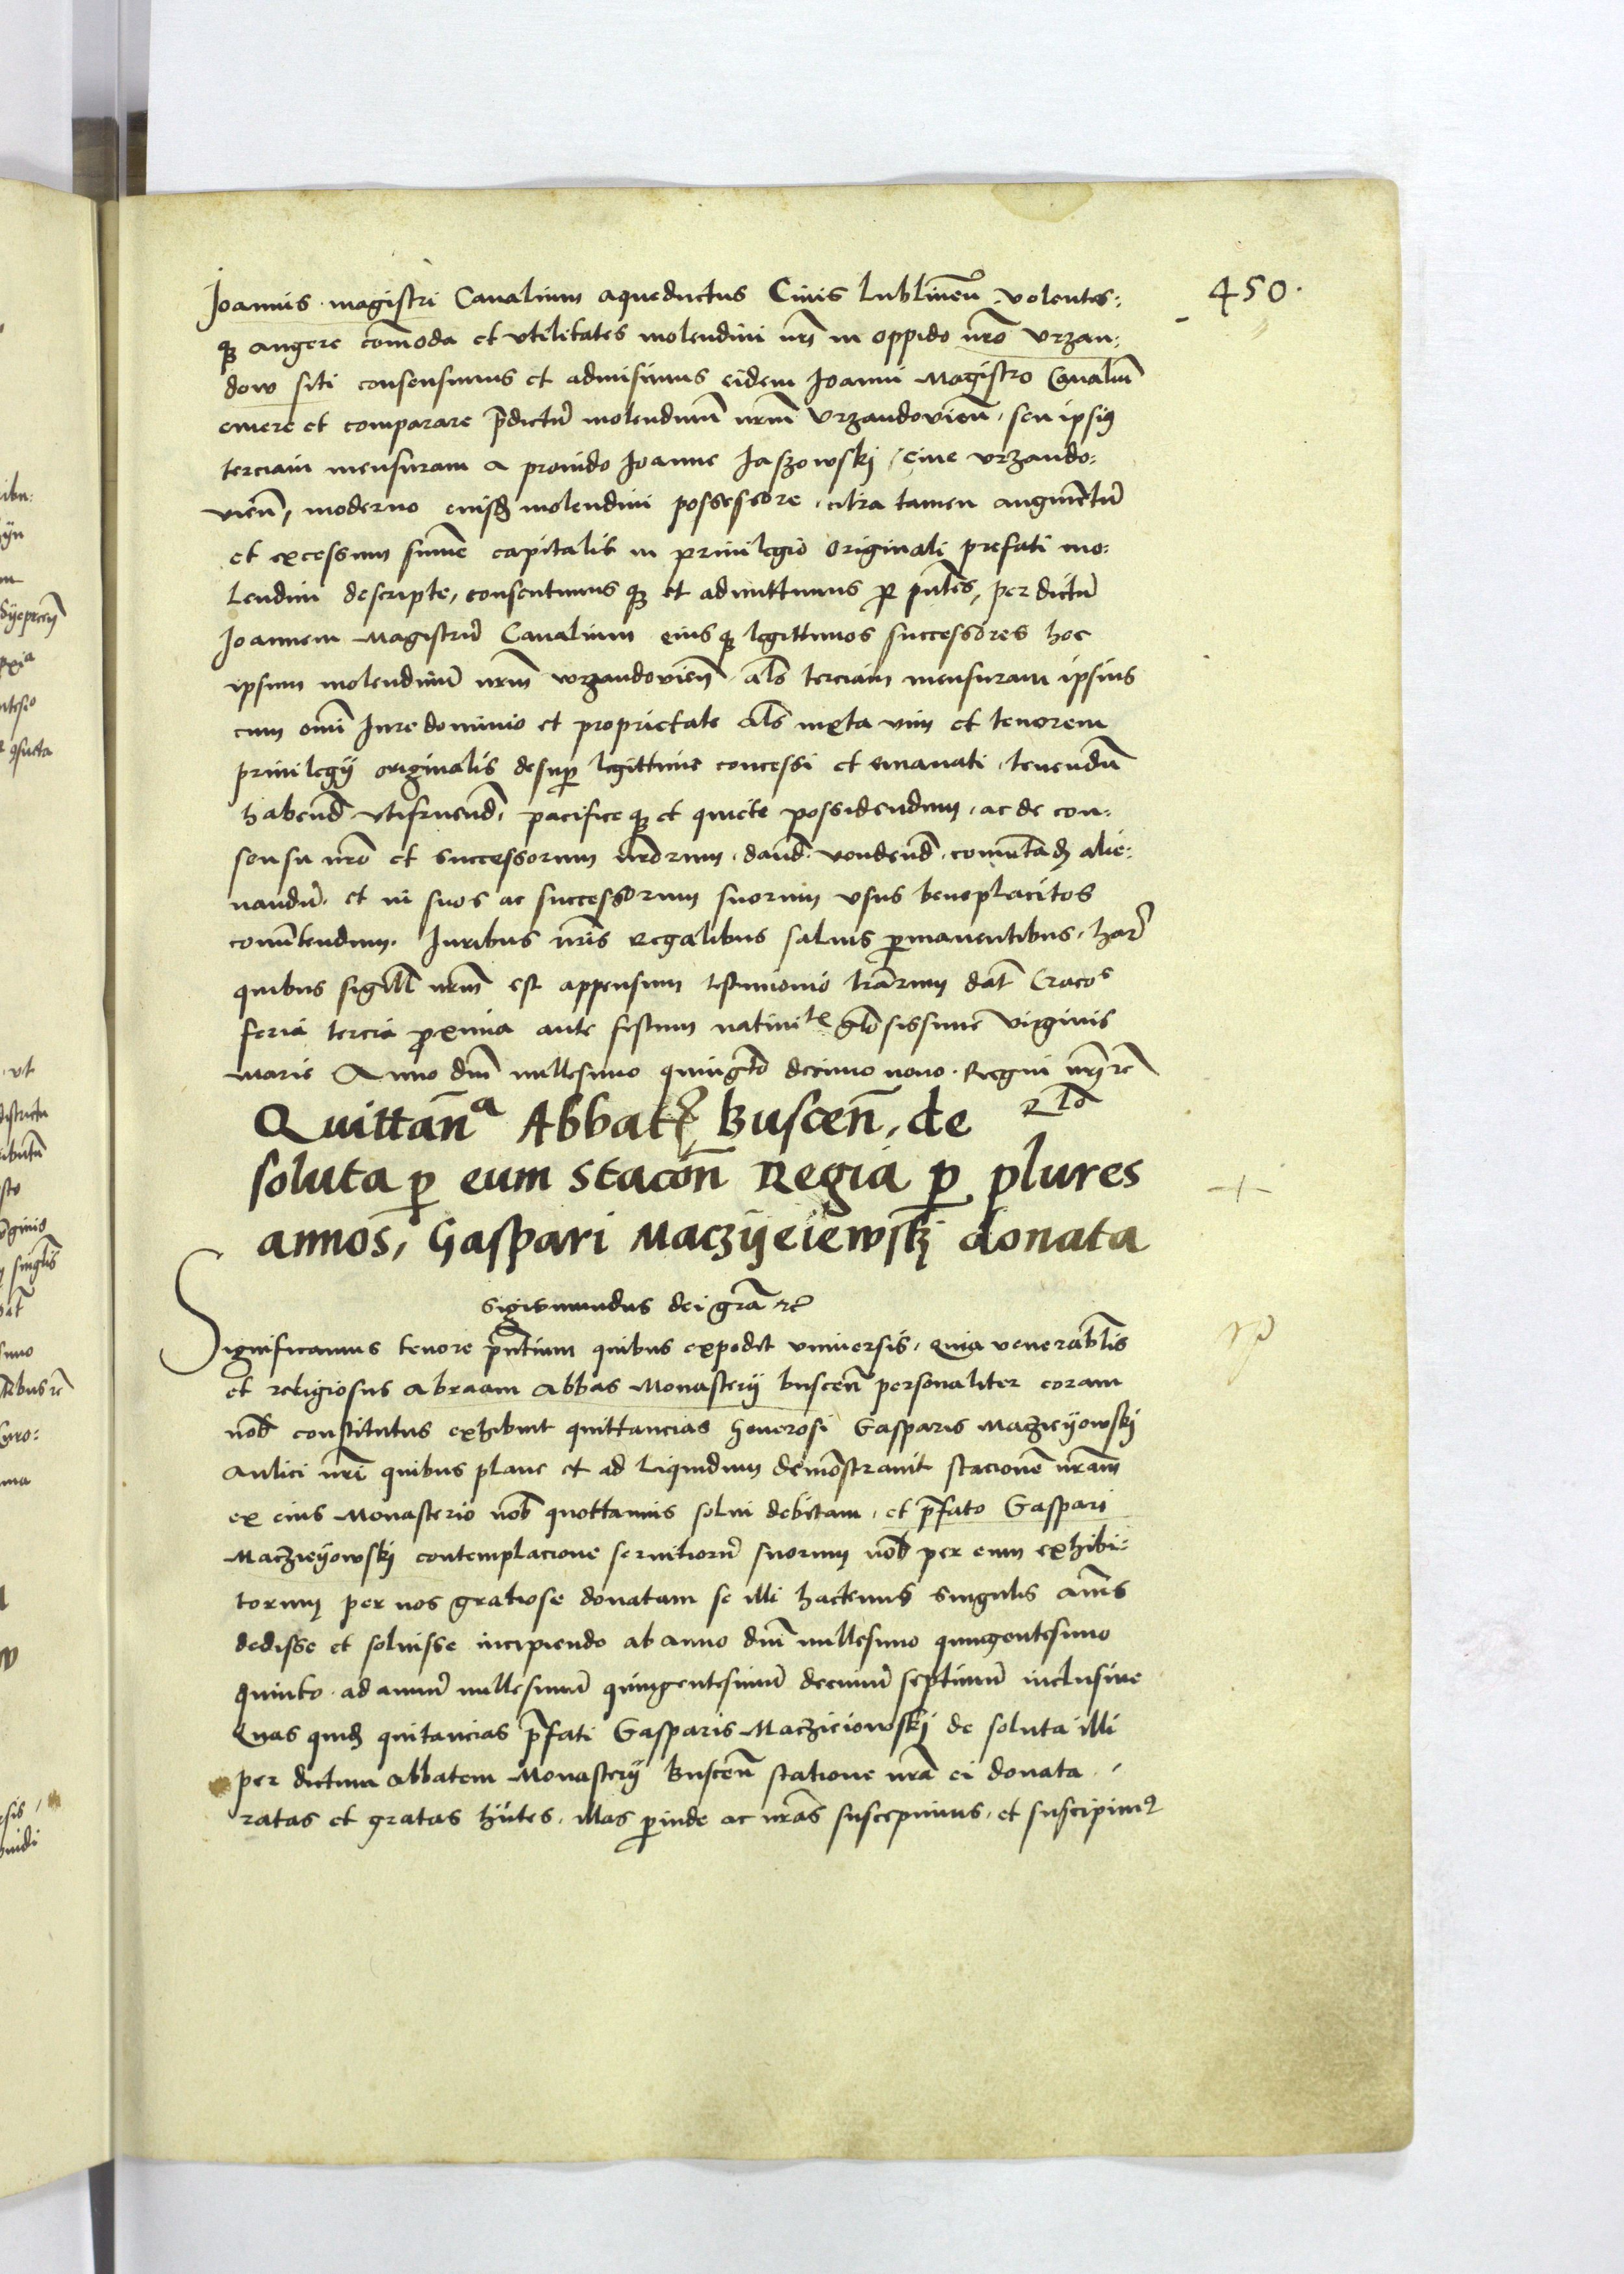 450.
Joannis magistri Canalium aqueductus Ciuis lublinen̄ volentes:
q̨ augere com̄oda et vtilitates molendini nr̄i in oppido nr̄o vrzan:
dow siti consensimus et admisimus eidem Joanni Magistro Canaliū
emere et comparare p̄dictū molendinū nrm̄ vrzandovien̄, seu ipsiꝰ
terciam mensuram a prouido Joanne Jaszowskj, ciue vrzando:
vien̄, moderno eiusdē molendini possessore, citra tamen augmētū
et excessum sum̄e capitalis in priuilegio originali prefati mo:
lendini descripte, consentimus q̨ et admittimus ꝑ pn̄tes, per dictū
Joannem Magistrū Canalium eius q̨ legittimos successores hoc
ipsum molendinū nrm̄ wrzandovien̄, al̄s terciam mensuram ipsius
cum om̄i Jure dominio et proprietate al̄s iuxta vim et tenorem
priuilegij originalis desuꝑ legittime concessi et emanati, tenendū
habend̄, vtifruend̄, pacifice q̨ et quiete possidendum, ac de con:
sensu nr̄o et successorum nr̄orum, dand̄. vendend̄. comutād̄ alie:
nandū, et in suos ac successorum suorum vsus beneplacitos
conuertendum. Juribus nr̄is regalibus saluis ꝑmanentibus, har̄
quibus sigill̄ nrm̄ est appensum testimonio lr̄arum dat̄ Cracoꝰ
feria tercia ꝓxima ante festum natiuitꝭ glōsissime virginis
marie Anno dn̄i millesimo quingͭo decimo nono. Regni nr̄i rc̄
Quittan̄ᵃ Abbatꝭ Buscen̄, de
soluta ꝑ eum stacōn̄ Regia ꝑ plures
annos, Gaspari Maczijeiewskj donata
Sigismundus dei grā rc̄
Significamus tenore pn̄tium quibus expedit vniuersis, quia venerabl̄is
et religiosus Abraam Abbas Monasterij buscen̄ personaliter coram
nob̄ constitutus exhibuit quittancias generosi Gasparis Maczieyowskj
Aulici nr̄i quibus plane et ad liquidum demōstrauit stacionē nrām
ex eius Monasterio nob̄ quottannis solui debitam, et p̄fato Gaspari
Maczieyowskj contemplacione seruitiorū suorum nob̄ per eum exhibi:
torum per nos gratiose donatam se illi hactenus singulis an̄is
dedisse et soluisse incipiendo ab anno dn̄i millesimo quingentesimo
quinto ad annū millesimū quingentesimū decimū septimū inclusiue
Quas quid̄ quitancias p̄fati Gasparis Maczieiowskj de soluta illi
per dictum abbatem Monasterij Buscen̄ statione nrā ei donata,
ratas et gratas hn̄tes, illas ꝑinde ac nrās suscepimus, et suscipimꝰ